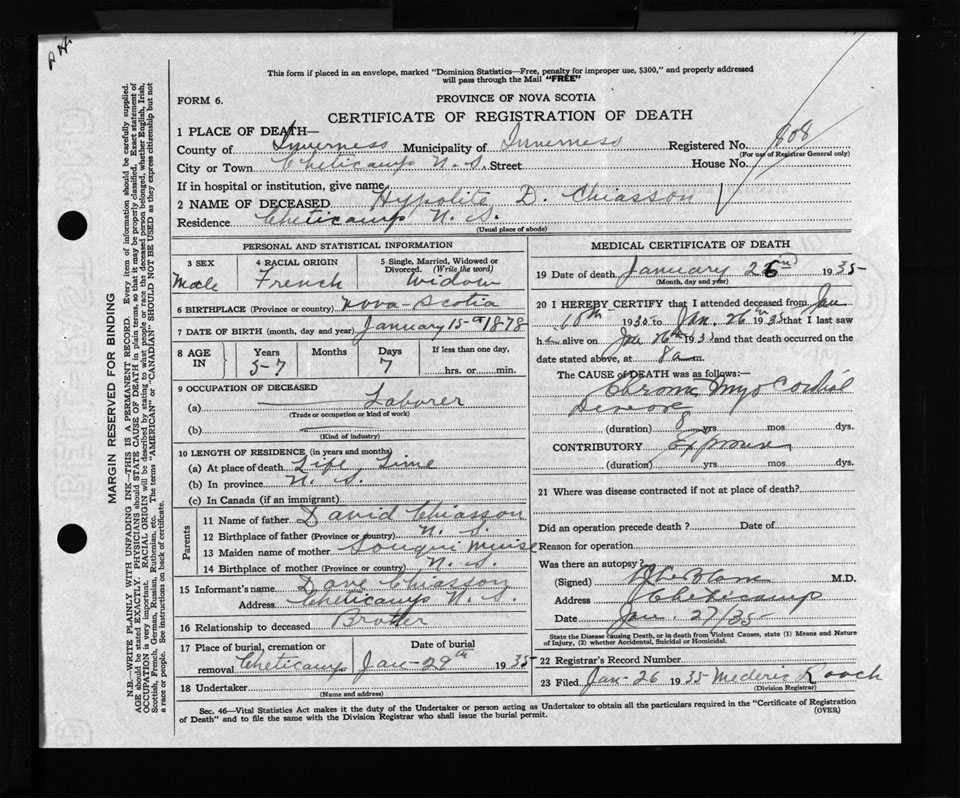 This form if placed in an envelope, marked "Dominion Statistics—Free, penalty for improper use, $300," and properly addressed
will pass through the Mail "FREE"
FORM 6.
PROVINCE OF NOVA SCOTIA
CERTIFICATE OF REGISTRATION OF DEATH
1 PLACE OF DEATH—
County of Inverness Municipality of Inverness Registered No. 808
(For use of Registrar General only)
City or Town Cheticamp N. S. Street House No.
If in hospital or institution, give name
2 NAME OF DECEASED Hypolite D. Chiasson
Residence Cheticamp N. S.
(Usual place of abode)
MARGIN RESERVED FOR BINDING
N.B.—WRITE PLAINLY WITH UNFADING INK—THIS IS A PERMANENT RECORD. Every item of information should be carefully supplied.
AGE should be stated EXACTLY. PHYSICIANS should STATE CAUSE OF DEATH in plain terms, so that it may be properly classified. Exact statement of
OCCUPATION is very important. RACIAL ORIGIN will be described by stating to what people or race the deceased person belonged, whether English, Irish,
Scottish, French, German, Russian, Ruthenian, etc. The terms "AMERICAN" or "CANADIAN" SHOULD NOT BE USED as they express citizenship but not
a race or people. See instructions on back of certificate.
PERSONAL AND STATISTICAL INFORMATION
3 SEX
Male
4 RACIAL ORIGIN
French
5 Single, Married, Widowed or
Divorced. (Write the word)
Widow
6 BIRTHPLACE (Province or country) Nova-Scotia
7 DATE OF BIRTH (month, day and year) January 15-1878
8 AGE
IN
Years
57
Months
Days
7
If less than one day,
hrs. or min.
9 OCCUPATION OF DECEASED
(a) Laborer
(Trade or occupation or kind of work)
(b)
(Kind of industry)
10 LENGTH OF RESIDENCE (in years and months)
(a) At place of death Life Time
(b) In province N. S.
(c) In Canada (if an immigrant)
Parents
11 Name of father David Chiasson
12 Birthplace of father (Province or country) N. S.
13 Maiden name of mother
14 Birthplace of mother (Province or country) N. S.
15 Informant's name Dave Chiasson
Address Cheticamp N. S.
16 Relationship to deceased Brother
17 Place of burial, cremation or Date of burial
removal Cheticamp Jan-29th 1935
18 Undertaker
(Name and address)
MEDICAL CERTIFICATE OF DEATH
19 Date of death January 26 1935
(Month, day and year)
20 I HEREBY CERTIFY that I attended deceased from Jan
10th 1930 to Jan. 26th 1935 that I last saw
him alive on Jan 26th 1935 and that death occurred on the
date stated above, at 8 a m.
The CAUSE of DEATH was as follows:
Chronic Myocardial
Disease
(duration) 8 yrs mos dys.
CONTRIBUTORY Exposure
(duration) yrs mos dys.
21 Where was disease contracted if not at place of death?
Did an operation precede death? Date of
Reason for operation
Was there an autopsy?
(Signed) LeBlanc M.D.
Address Cheticamp
Date Jan. 27/35
State the Disease causing Death, or in death from Violent Causes, state (1) Means and Nature
of Injury, (2) whether Accidental, Suicidal or Homicidal.
22 Registrar's Record Number
23 Filed Jan-26 1935 Mederic Roach
(Division Registrar)
Sec. 46—Vital Statistics Act makes it the duty of the Undertaker or person acting as Undertaker to obtain all the particulars required in the "Certificate of Registration
of Death" and to file the same with the Division Registrar who shall issue the burial permit.
(OVER)